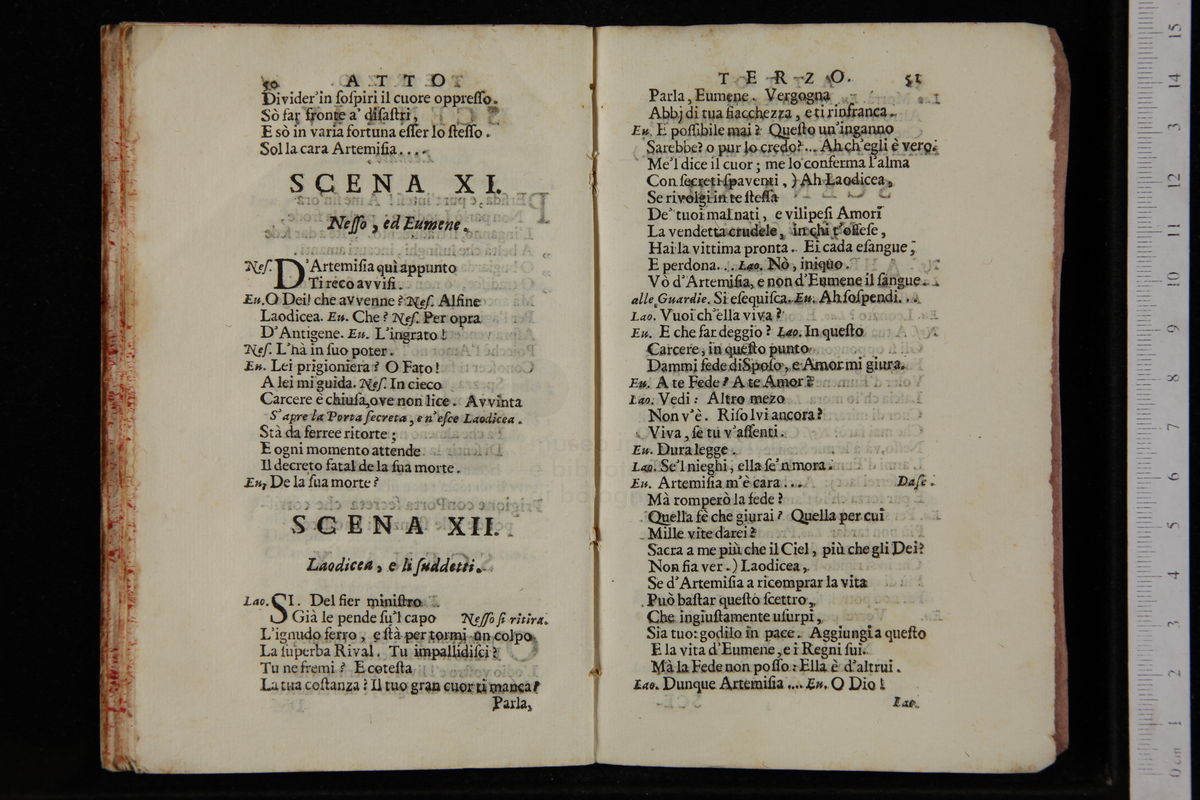 50 ATTO
Divider'in ſoſpiri il cuore oppreſſo.
Sò far fronte a' diſaſtri,
E sò in varia fortuna eſſer lo ſteſſo.
Sol la cara Artemiſia....
SCENA XI.
Neſſo, ed Eumene.
Neſ. D'Artemiſia quì appunto
Ti reco avviſi.
Eu. O Dei! che avvenne? Neſ. Alfine
Laodicea. Eu. Che? Neſ. Per opra
D'Antigene. Eu. L'ingrato!
Neſ. L'hà in ſuo poter.
Eu. Lei prigioniera? O Fato!
A lei mi guida. Neſ. In cieco
Carcere è chiuſa, ove non lice. Avvinta
S'apre la Porta ſecreta, e n'eſce Laodicea.
Stà da ferree ritorte;
E ogni momento attende
Il decreto fatal de la ſua morte.
Eu. De la ſua morte?
SCENA XII.
Laodicea, e li ſuddetti.
Lao. SI. Del fier miniſtro
Già le pende ſu'l capo Neſſo ſi ritira.
L'ignudo ferro, e ſtà per tormi un colpo
La ſuperba Rival. Tu impallidiſci?
Tu ne fremi? E coteſta
La tua coſtanza? Il tuo gran cuor ti manca?
Parla,
TERZO. 51
Parla, Eumene. Vergogna
Abbj di tua fiacchezza, e ti rinfranca.
Eu. E poſſibile mai? Queſto un'inganno
Sarebbe? o pur lo credo?... Ah ch'egli è vero.
Me'l dice il cuor; me lo conferma l'alma
Con ſecreti ſpaventi,) Ah Laodicea,
Se rivolgi in te ſteſſa
De' tuoi mal nati, e vilipeſi Amori
La vendetta crudele, in chi t'offeſe,
Hai la vittima pronta. Ei cada eſangue,
E perdona... Lao. Nò, iniquo.
Vò d'Artemiſia, e non d'Eumene il ſangue.
alle Guardie. Si eſequiſca. Eu. Ah ſoſpendi...
Lao. Vuoi ch'ella viva?
Eu. E che far deggio? Lao. In queſto
Carcere, in queſto punto
Dammi fede di Spoſo, e Amor mi giura.
Eu. A te Fede? A te Amor?
Lao. Vedi: Altro mezo
Non v'è. Riſolvi ancora?
Viva, ſe tu v'aſſenti.
Eu. Dura legge.
Lao. Se'l nieghi, ella ſe'n mora.
Eu. Artemiſia m'è cara... Da ſe.
Mà romperò la fede?
Quella fè che giurai? Quella per cui
Mille vite darei?
Sacra a me più che il Ciel, più che gli Dei?
Non fia ver.) Laodicea,
Se d'Artemiſia a ricomprar la vita
Può baſtar queſto ſcettro,
Che ingiuſtamente uſurpi,
Sia tuo: godilo in pace. Aggiungi a queſto
E la vita d'Eumene, e i Regni ſui.
Mà la Fede non poſſo: Ella è d'altrui.
Lao. Dunque Artemiſia.... Eu. O Dio!
Lao.